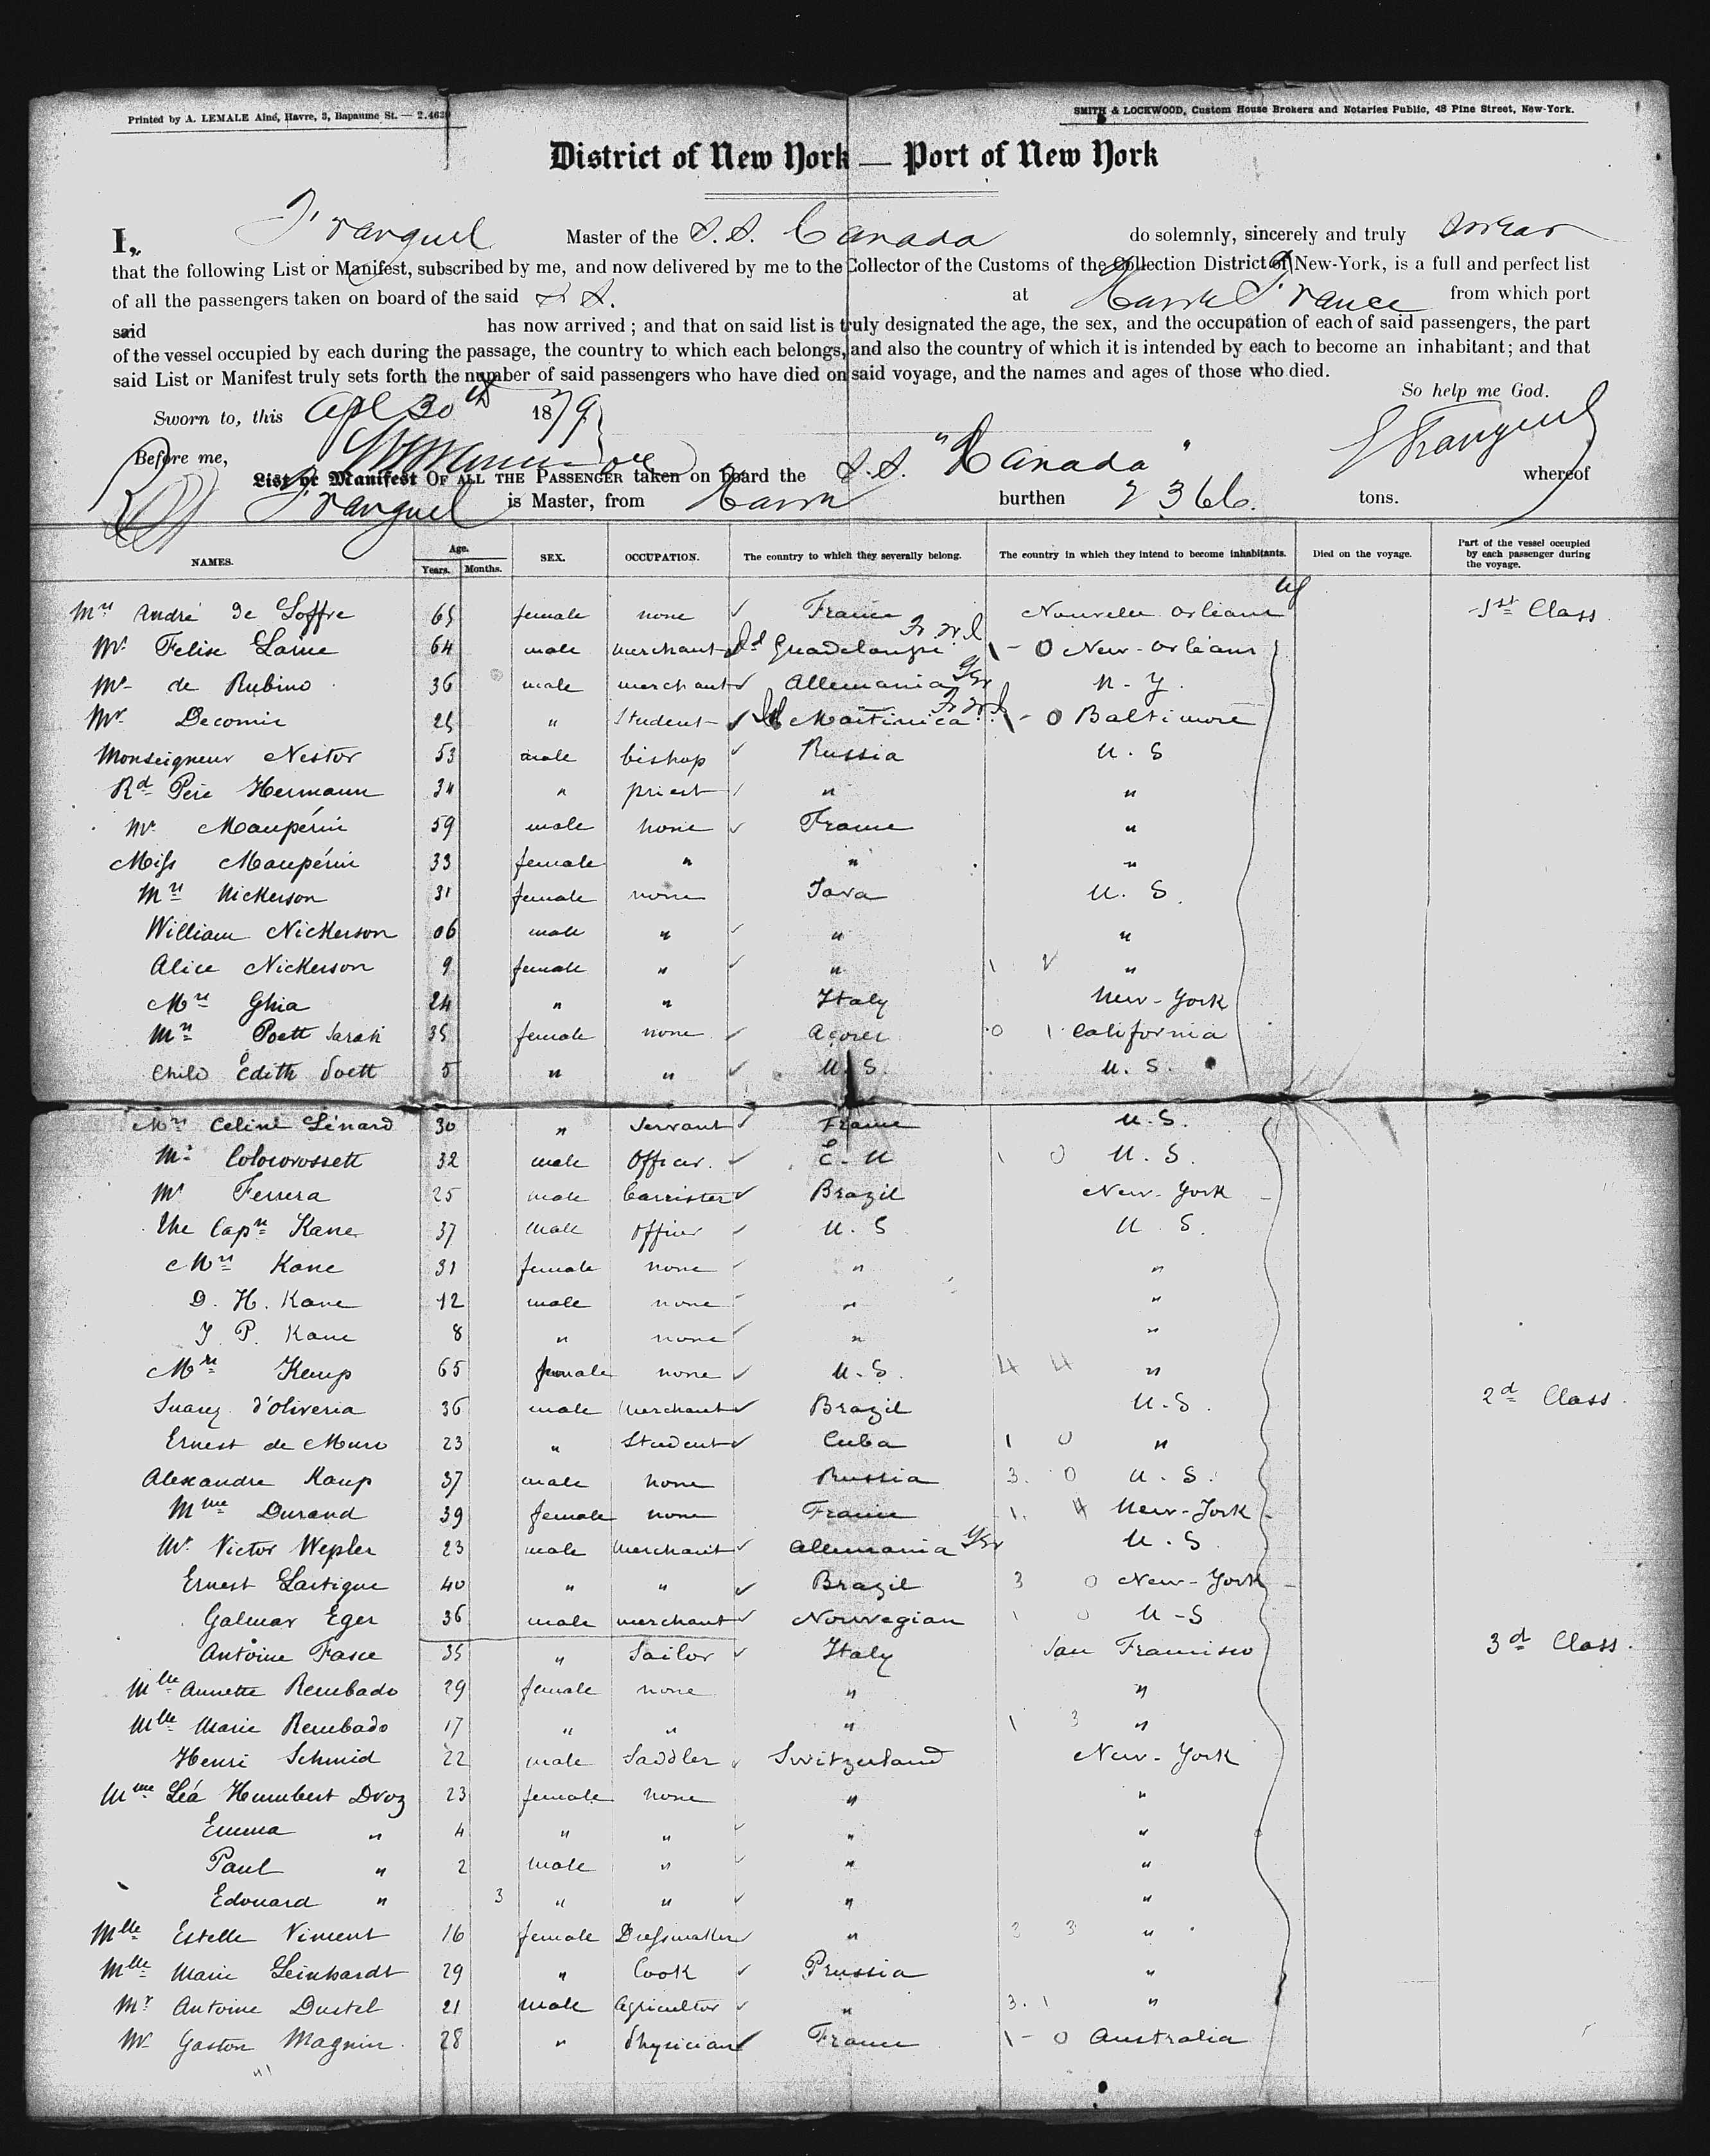 Printed by A. LEMALE Aîné, Havre, 3, Bapaume St. — 2.4629
SMITH & LOCKWOOD, Custom House Brokers and Notaries Public, 48 Pine Street, New-York.
District of New York — Port of New York
I, Frangeul Master of the S.S. Canada do solemnly, sincerely and truly swear
that the following List or Manifest, subscribed by me, and now delivered by me to the Collector of the Customs of the Collection District of New-York, is a full and perfect list
of all the passengers taken on board of the said S S. at Havre France from which port
said has now arrived; and that on said list is truly designated the age, the sex, and the occupation of each of said passengers, the part
of the vessel occupied by each during the passage, the country to which each belongs, and also the country of which it is intended by each to become an inhabitant; and that
said List or Manifest truly sets forth the number of said passengers who have died on said voyage, and the names and ages of those who died.
So help me God.
Sworn to, this Apl 30th 1879
Frangeul
Before me,
List or Manifest OF ALL THE PASSENGER taken on board the S.S. "Canada" whereof
Frangeul is Master, from Havre burthen 2366. tons.
NAMES. Age. Years. Months. SEX. OCCUPATION. The country to which they severally belong. The country in which they intend to become inhabitants. Died on the voyage. Part of the vessel occupied by each passenger during the voyage.
Mrs André de Soffre 65 female none France Nouvelle Orleans US 1st Class
Mr Felix Laine 64 male merchant Guadeloupe Fr W I 1 - 0 New-Orleans
Mr de Rubino 36 male merchant Allemania Ger N-Y.
Mr Decomis 25 " Student Martinica Fr W I 1 - 0 Baltimore
Monseigneur Nestor 53 male bishop Russia U.S
Rd Père Hermann 34 " priest " "
Mr Maupérin 59 male none France "
Miss Maupérin 33 female " " "
Mrs Nickerson 31 female none Java U.S.
William Nickerson 06 male " " "
Alice Nickerson 9 female " " 1 "
Mrs Ghia 24 " " Italy New-York
Mrs Poett Sarah 35 female none Açores 0 1 California
Child Edith Poett 5 " " U.S. U.S.
Mrs Celine Lénard 30 " Servant France U.S.
Mr Colocorossett 32 male Officer. E.U 1 0 U.S.
Mr Ferrera 25 male barrister Brazil New-York
The Capn Kane 37 male Officer U.S U.S.
Mrs Kane 31 female none " "
D. H. Kane 12 male none " "
J P. Kane 8 " none " "
Mrs Kemp 65 female none U.S. 4 4 "
Suarez d'oliveria 36 male merchant Brazil U.S. 2d Class.
Ernest de Muro 23 " Student Cuba 1 0 "
Alexandre Kaup 37 male none Russia 3. 0 U.S.
Mme Durand 39 female none France 1. 4 New-York
Mr Victor Wepler 23 male merchant Allemania Ger U.S
Ernest Lartigue 40 " " Brazil 3 0 New-York
Galmar Eger 36 male merchant Norwegian 1 0 U-S
Antoine Fasce 35 " Sailor Italy San Francisco 3d Class.
Mlle Annette Rembado 29 female none " "
Mlle Marie Rembado 17 " " " 1 3 "
Henri Schmid 22 male Saddler Switzerland New-York
Mme Léa Humbert Droz 23 female none " "
Emma " 4 " " " "
Paul " 2 male " " "
Edouard " 3 " " " "
Mlle Estelle Vincent 16 female Dressmaker " 3 3 "
Mlle Marie Leinhardt 29 " Cook Prussia "
Mr Antoine Dustel 21 male agricultor " 3. 1 "
Mr Gaston Magnin. 28 " Physician France 1 - 0 Australia